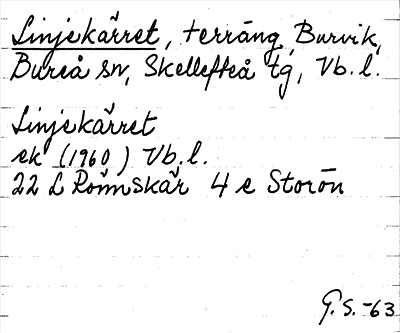 Linjekärret, terräng, Burvik,
Bureå sn, Skellefteå tg, Vb.l.
Linjekärret
ek (1960) Vb.l.
22 L Rönnskär 4 e Storön
G.S. -63